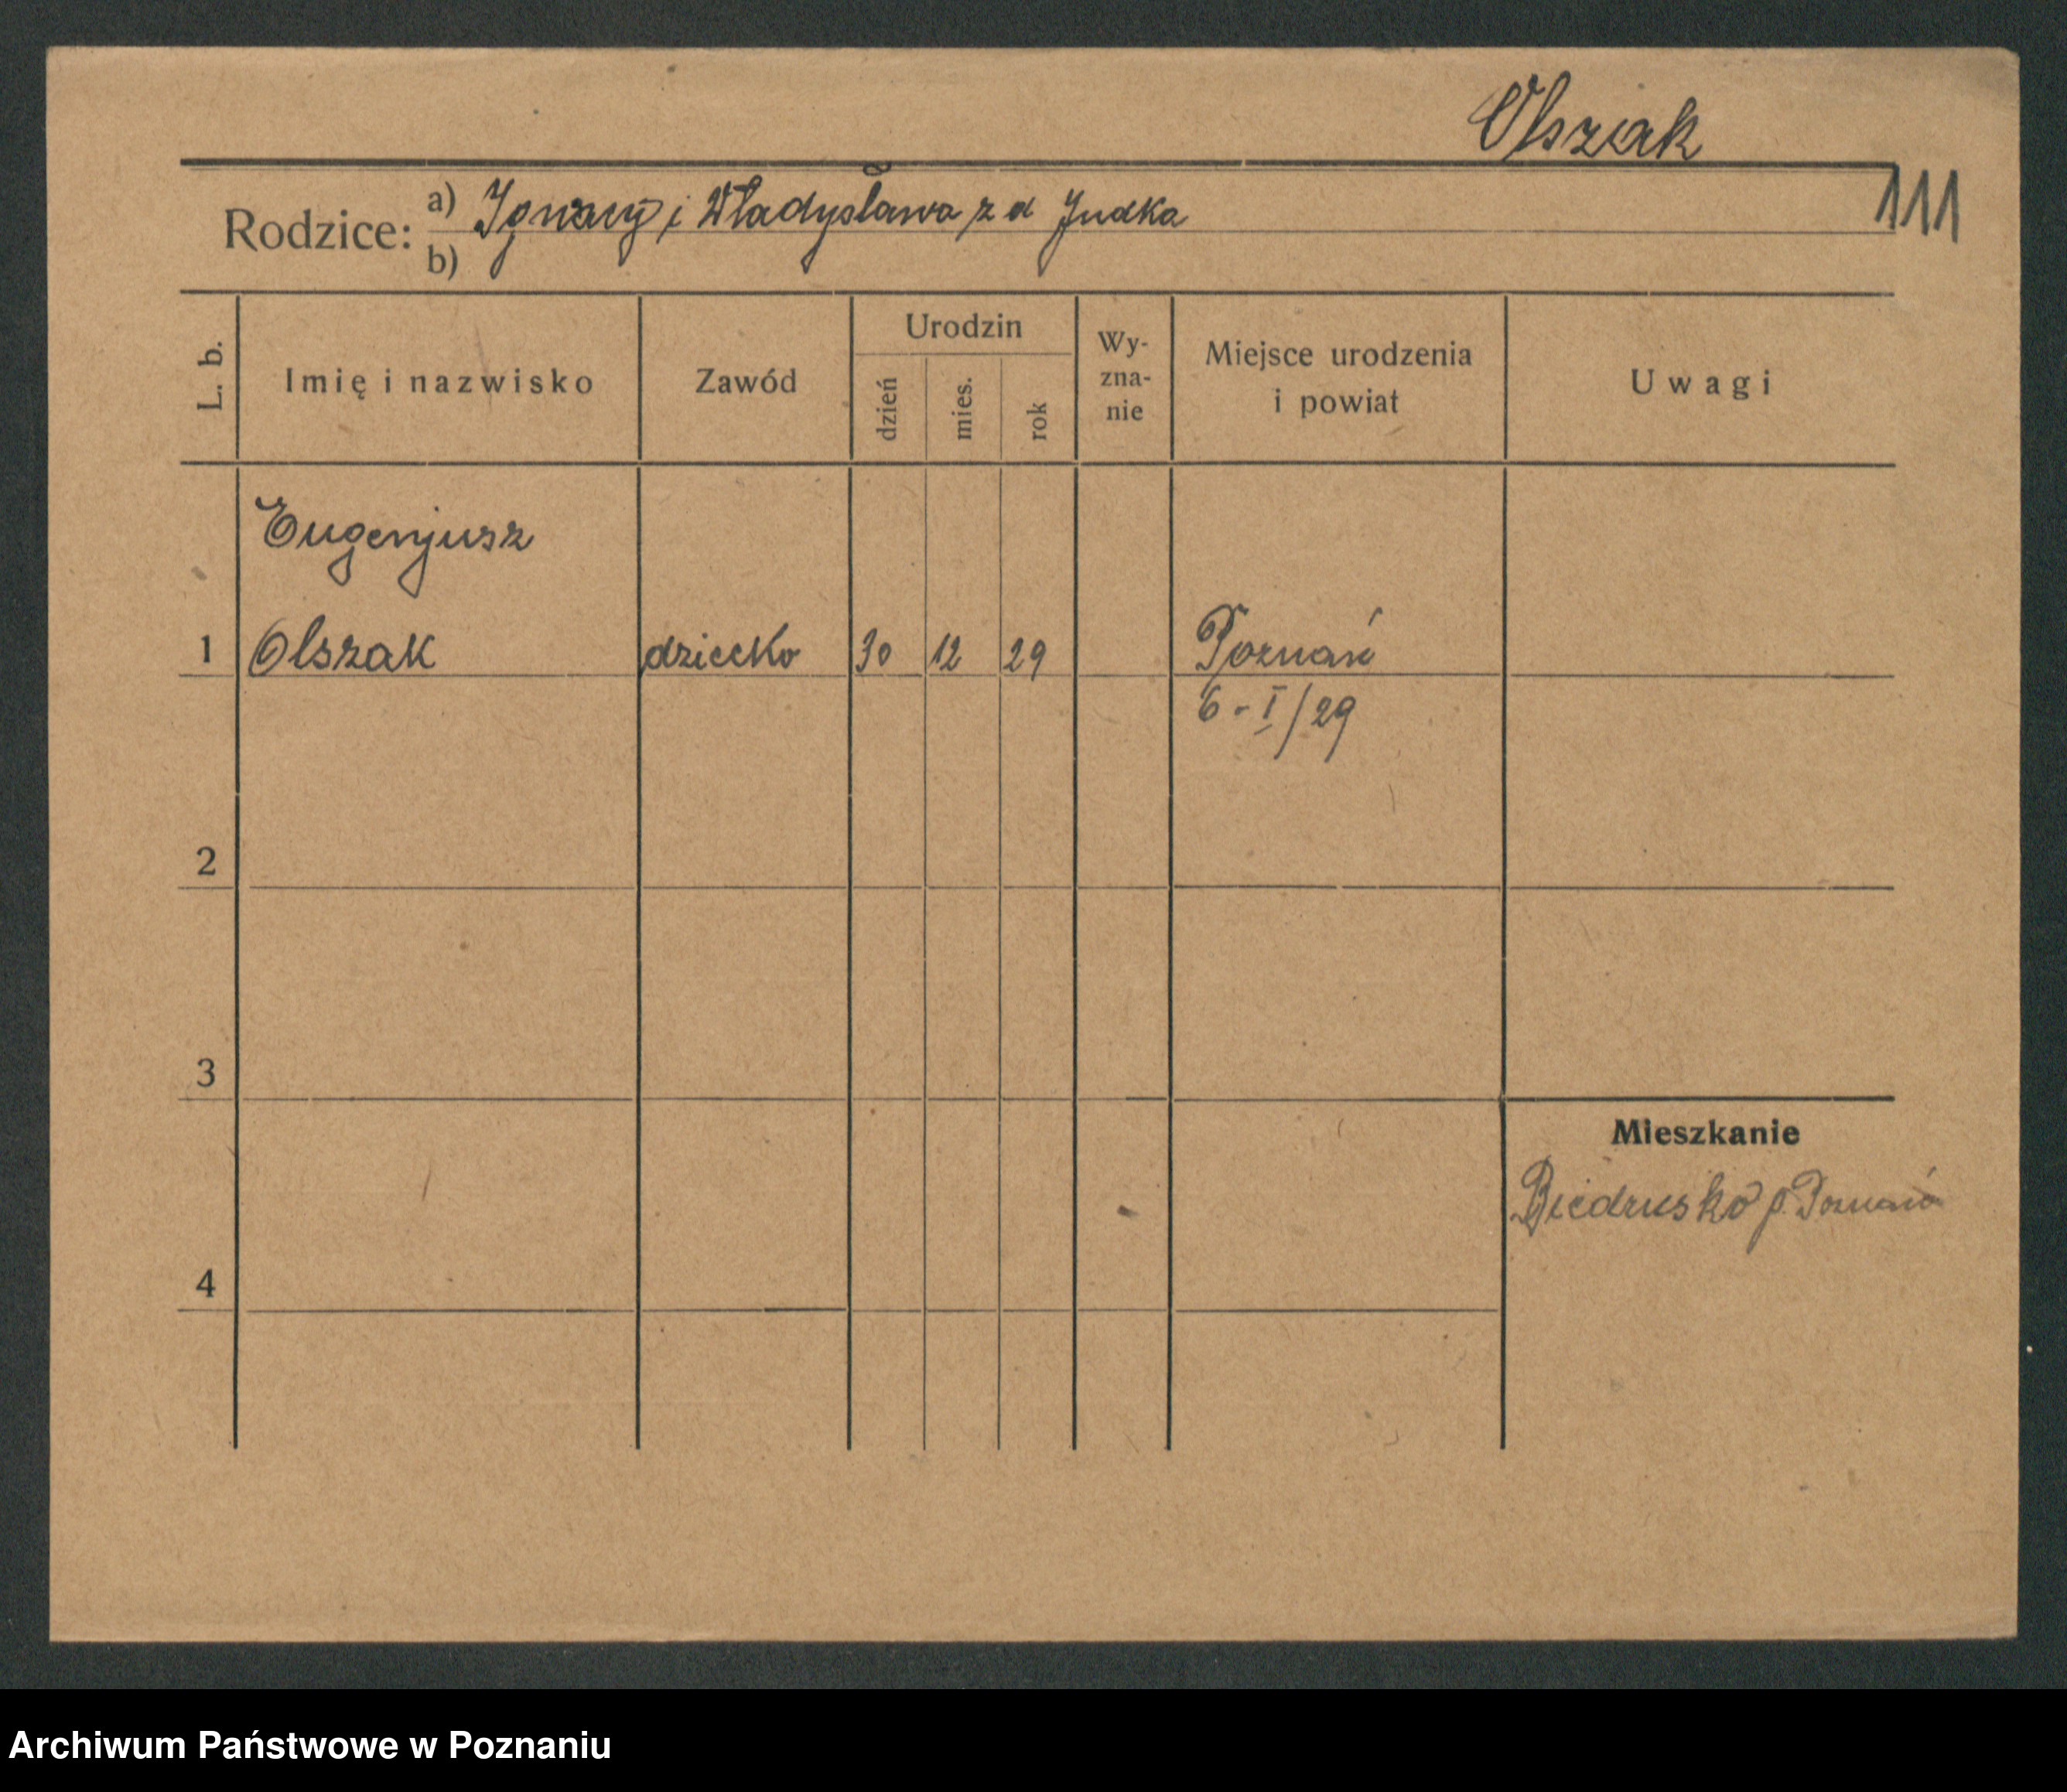 Olszak
111
Rodzice: a) Ignacy i Władysława z d Judka
b)
L. b.
Imię i nazwisko
Zawód
Urodzin
dzień
mies.
rok
Wy-
zna-
nie
Miejsce urodzenia
i powiat
Uwagi
Eugenjusz
1 Olszak dziecko 30 12 29 Poznań
6 - I / 29
2
3
Mieszkanie
Biedrusko p. Poznań
4
Archiwum Państwowe w Poznaniu